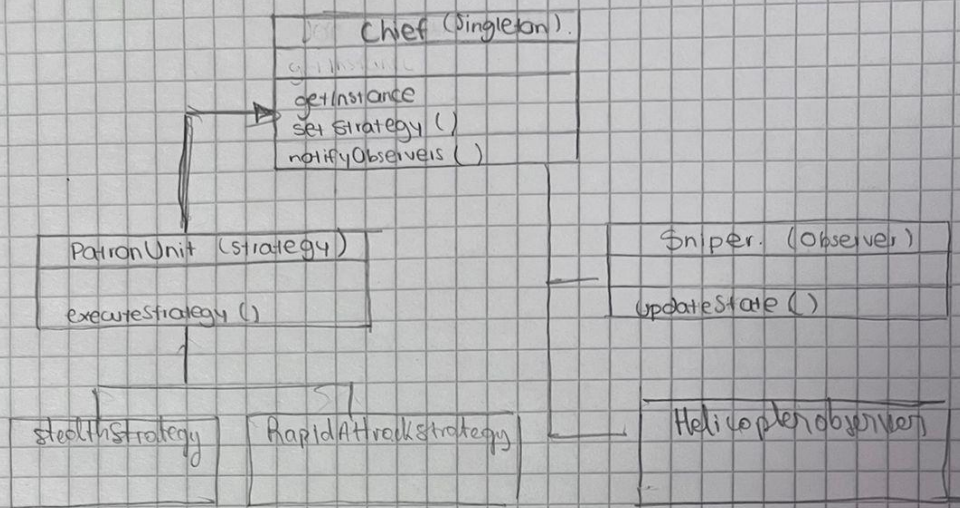 Chief (Singleton).
getInstance
set Strategy ()
notifyObservers ()
PatronUnit (Strategy)
executeStrategy ()
Sniper. (Observer)
UpdateState ()
StealthStrategy
RapidAttrackStrategy
Helicopterobserver